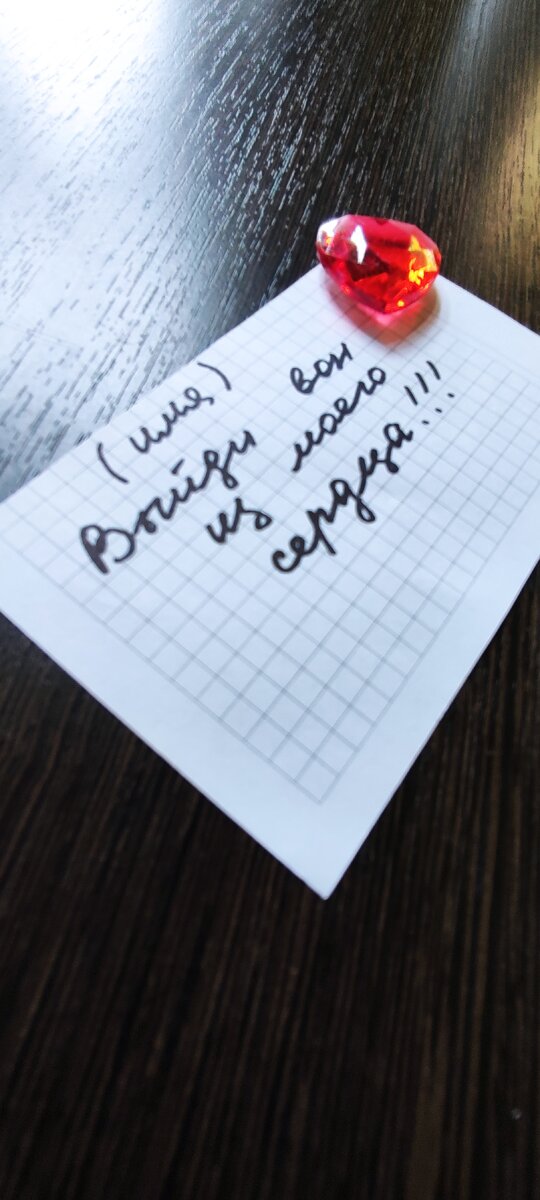 (имя)
Выйди вон
из моего
сердца!!!